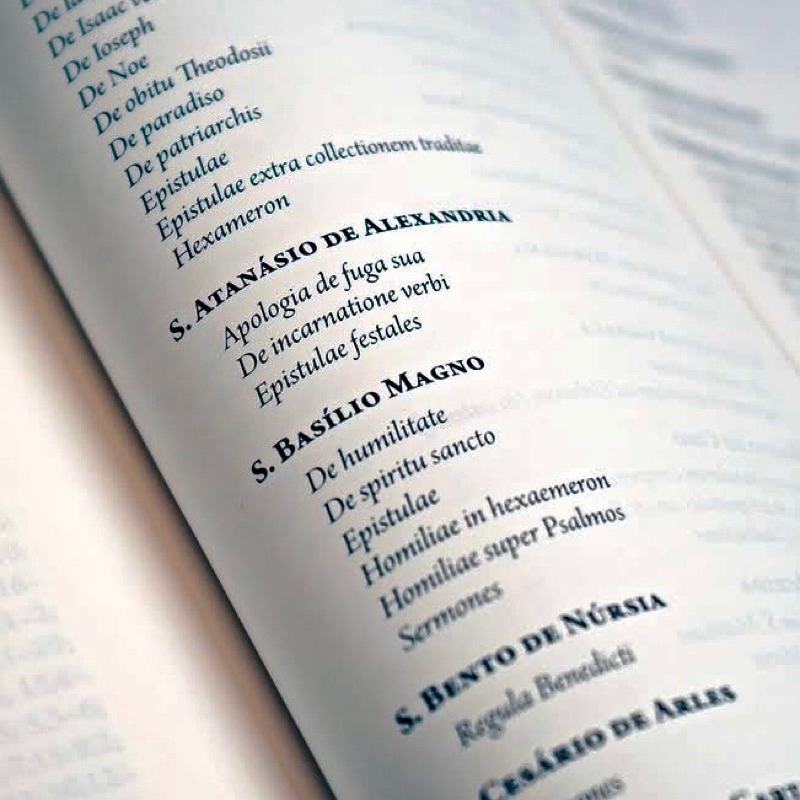 De Isaac
De Ioseph
De Noe
De obitu Theodosii
De paradiso
De patriarchis
Epistulae
Epistulae extra collectionem traditae
Hexameron
S. ATANÁSIO DE ALEXANDRIA
Apologia de fuga sua
De incarnatione verbi
Epistulae festales
S. BASÍLIO MAGNO
De humilitate
De spiritu sancto
Epistulae
Homiliae in hexaemeron
Homiliae super Psalmos
Sermones
S. BENTO DE NÚRSIA
Regula Benedicti
CESÁRIO DE ARLES